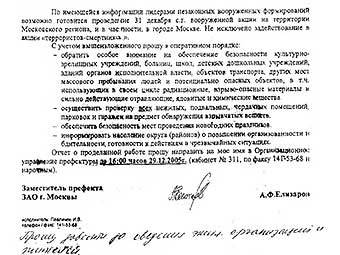 По имеющейся информации лидерами незаконных вооруженных формирований
возможно готовится проведение 31 декабря с.г. вооруженной акции на территории
Московского региона, и в частности, в городе Москве. Не исключено задействование в
акции «террористов-смертников».
С учетом вышеизложенного прошу в оперативном порядке:
- обратить особое внимание на обеспечение безопасности культурно-
зрелищных учреждений, больниц, школ, детских дошкольных учреждений,
зданий органов исполнительной власти, объектов транспорта, других мест
массового пребывания людей и потенциально опасных объектов, в т.ч.
использующих в своем цикле радиационные, взрыво-опасные материалы и
сильно действующие отравляющие, ядовитые и химические вещества
- осуществить проверку всех нежилых, подвальных, чердачных помещений,
парковок и гаражей на предмет обнаружения взрывчатых веществ.
- обеспечить безопасность мест проведения новогодних праздников.
- информировать население округа (районов) о повышении организованности и
бдительности, готовности к действиям в чрезвычайных ситуациях.
Отчет о проделанной работе прошу направить на мое имя в Организационное
управление префектуры до 16:00 часов 29.12.2005г. (кабинет № 311, по факсу 141-53-68 и
нарочным).
Заместитель префекта
ЗАО г. Москвы
А.Ф.Елизаров
исполнитель: Павликин И.В.
телефон/ факс 141-53-68
Прошу довести до сведения жил. организаций и
жителей.